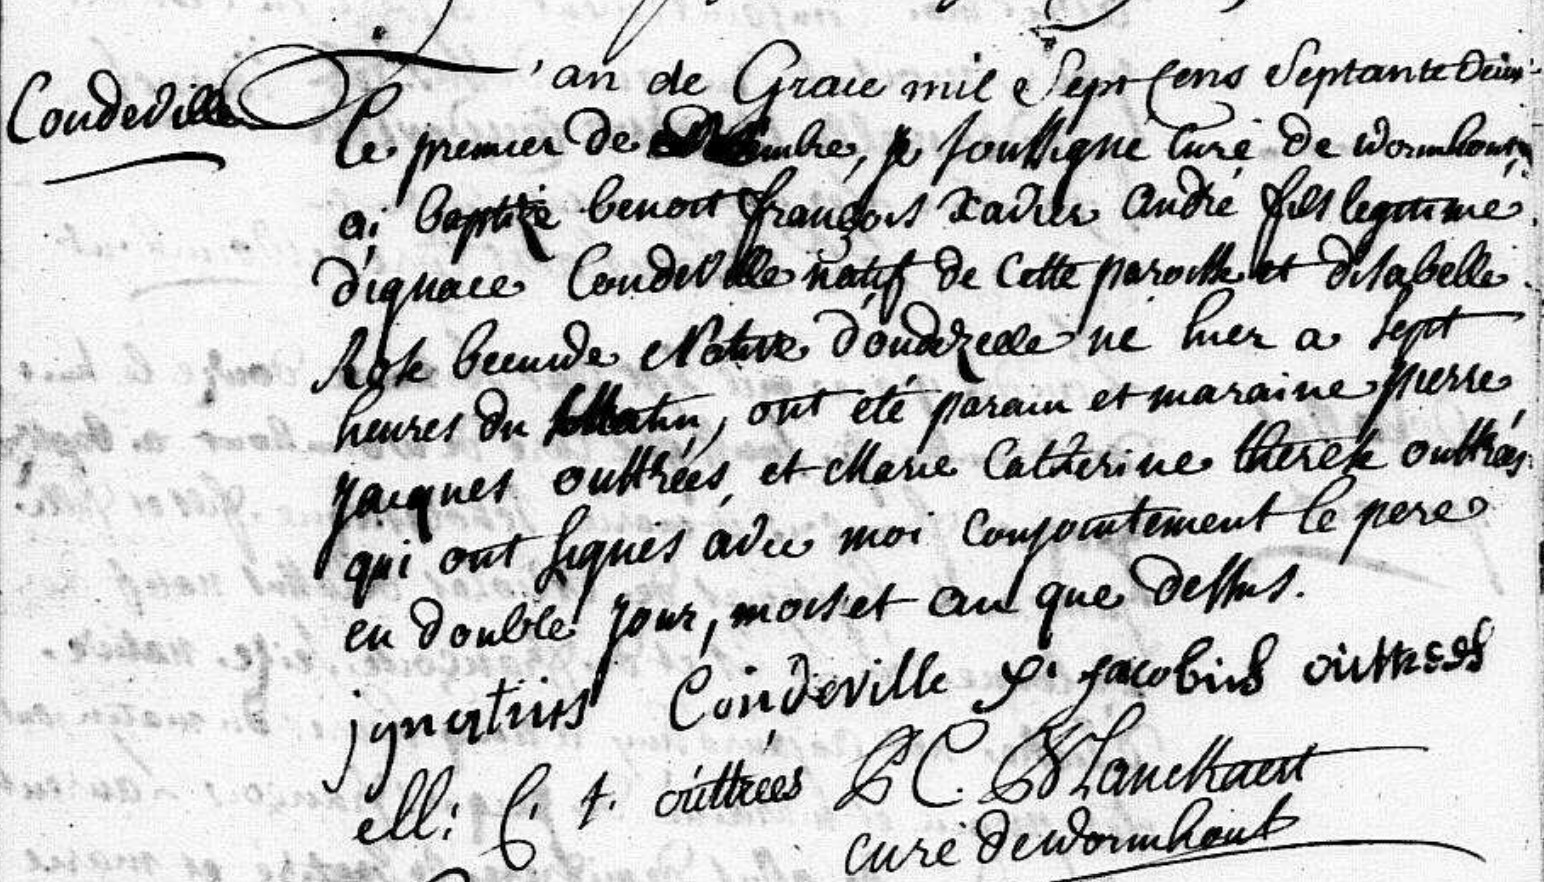 Coudeville
L'an de Grace mil Sept Cens Septante deux
le premier de embre, je soussigné Curé de Wormhout,
ai baptizé benoit françois Xavier André fils legitime
d'ignace Coudeville natif de Cette paroisse et d'isabelle
Rose Native d'oudezeele né hier a sept
heures du Matin, ont été parain et maraine pierre
jacques outtrées, et Marie Catherine therese outtrées
qui ont signés avec moi Conjointement le pere
en double jour, mois et an que dessus.
ignatius Coudeville p. jacobus outtrees
M: C: t. outtrees P C. Blanckaert
curé de wormhout